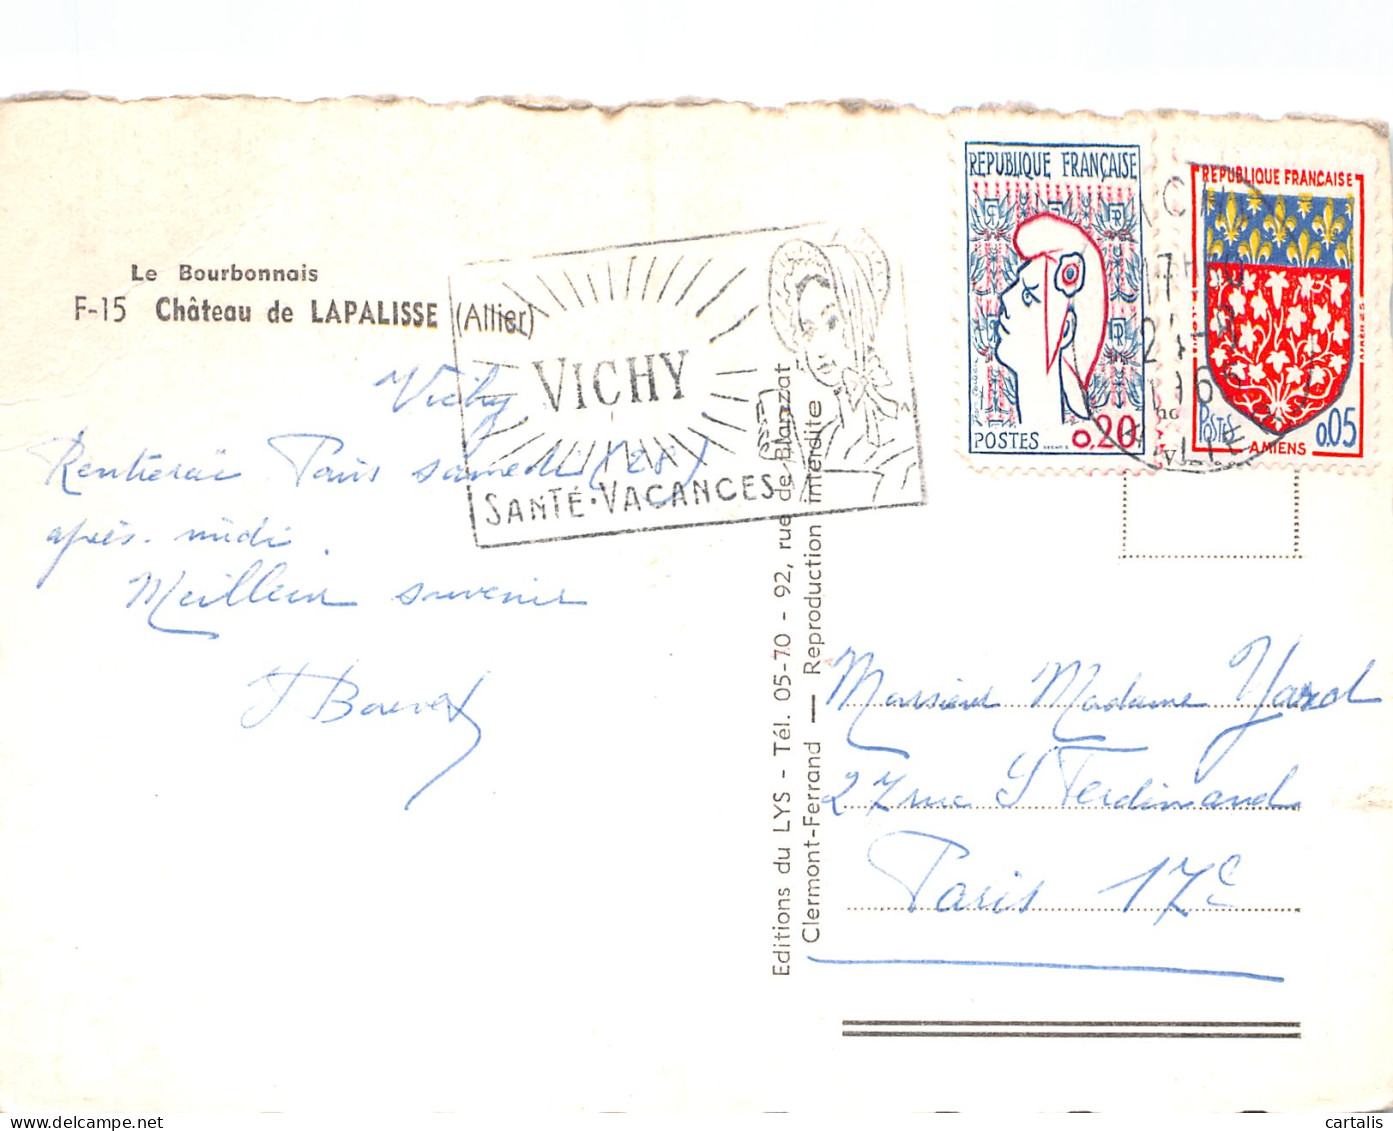 Le Bourbonnais
F-15 Château de LAPALISSE (Allier)
VICHY
SANTÉ·VACANCES
Vichy
Rentrerai Paris samedi (28)
après-midi.
Meilleur souvenir
Editions du LYS - Tél. 05-70 - 92, rue de Blanzat
Clermont-Ferrand — Reproduction interdite
REPUBLIQUE FRANÇAISE
POSTES 0,20
REPUBLIQUE FRANÇAISE
POSTES 0,05
AMIENS
17H
Monsieur Madame Yard
27 rue St Ferdinand
Paris 17e
www.delcampe.net
cartalis